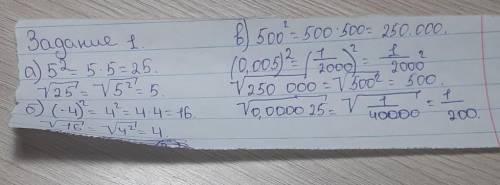 Задание 1.
а) 5² = 5·5 = 25.
√25 = √5² = 5.
б) (-4)² = 4² = 4·4 = 16.
√16 = √4² = 4.
в) 500² = 500·500 = 250.000.
(0,005)² = (1/2000)² = 1/2000²
√250 000 = √500² = 500.
√0,0000 25 = √1/40000 = 1/200.